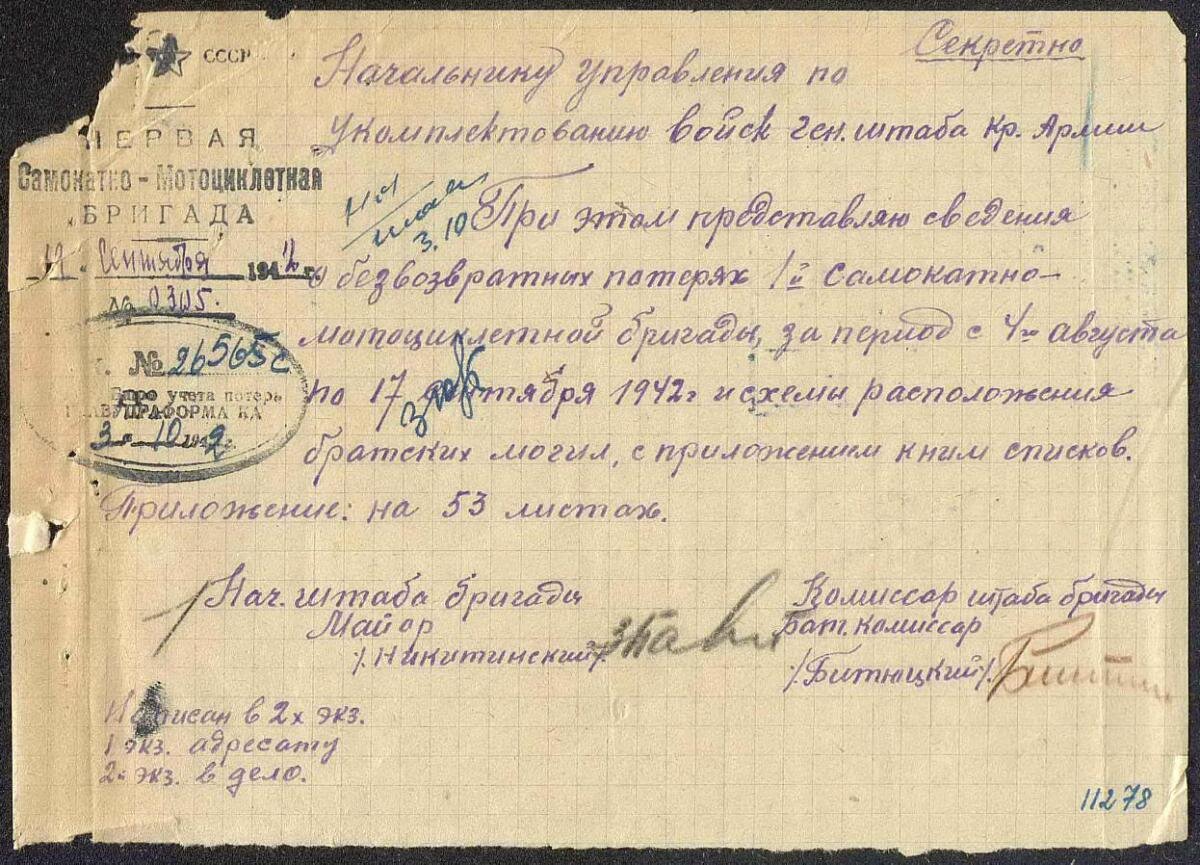 СССР
Секретно
Начальнику управления по
укомплектованию войск ген. штаба Кр. Армии
ПЕРВАЯ
Самокатно-Мотоциклетная
БРИГАДА
Сентября 1942 г.
№ 0305.
3.10
При этом представляю сведения
о безвозвратных потерях 1й самокатно-
мотоциклетной бригады, за период с 4го августа
по 17 сентября 1942г и схемы расположения
братских могил, с приложением к ним списков.
Приложение: на 53 листах.
№ 26565с
Бюро учета потерь
ГЛАВУПРАФОРМА КА
3 10 1942 г.
Нач. штаба бригады
Майор
/Никитинский/
Комиссар штаба бригады
Бат. комиссар
/Битюцкий/
Написан в 2х экз.
1 экз. адресату
2й экз. в дело.
11278